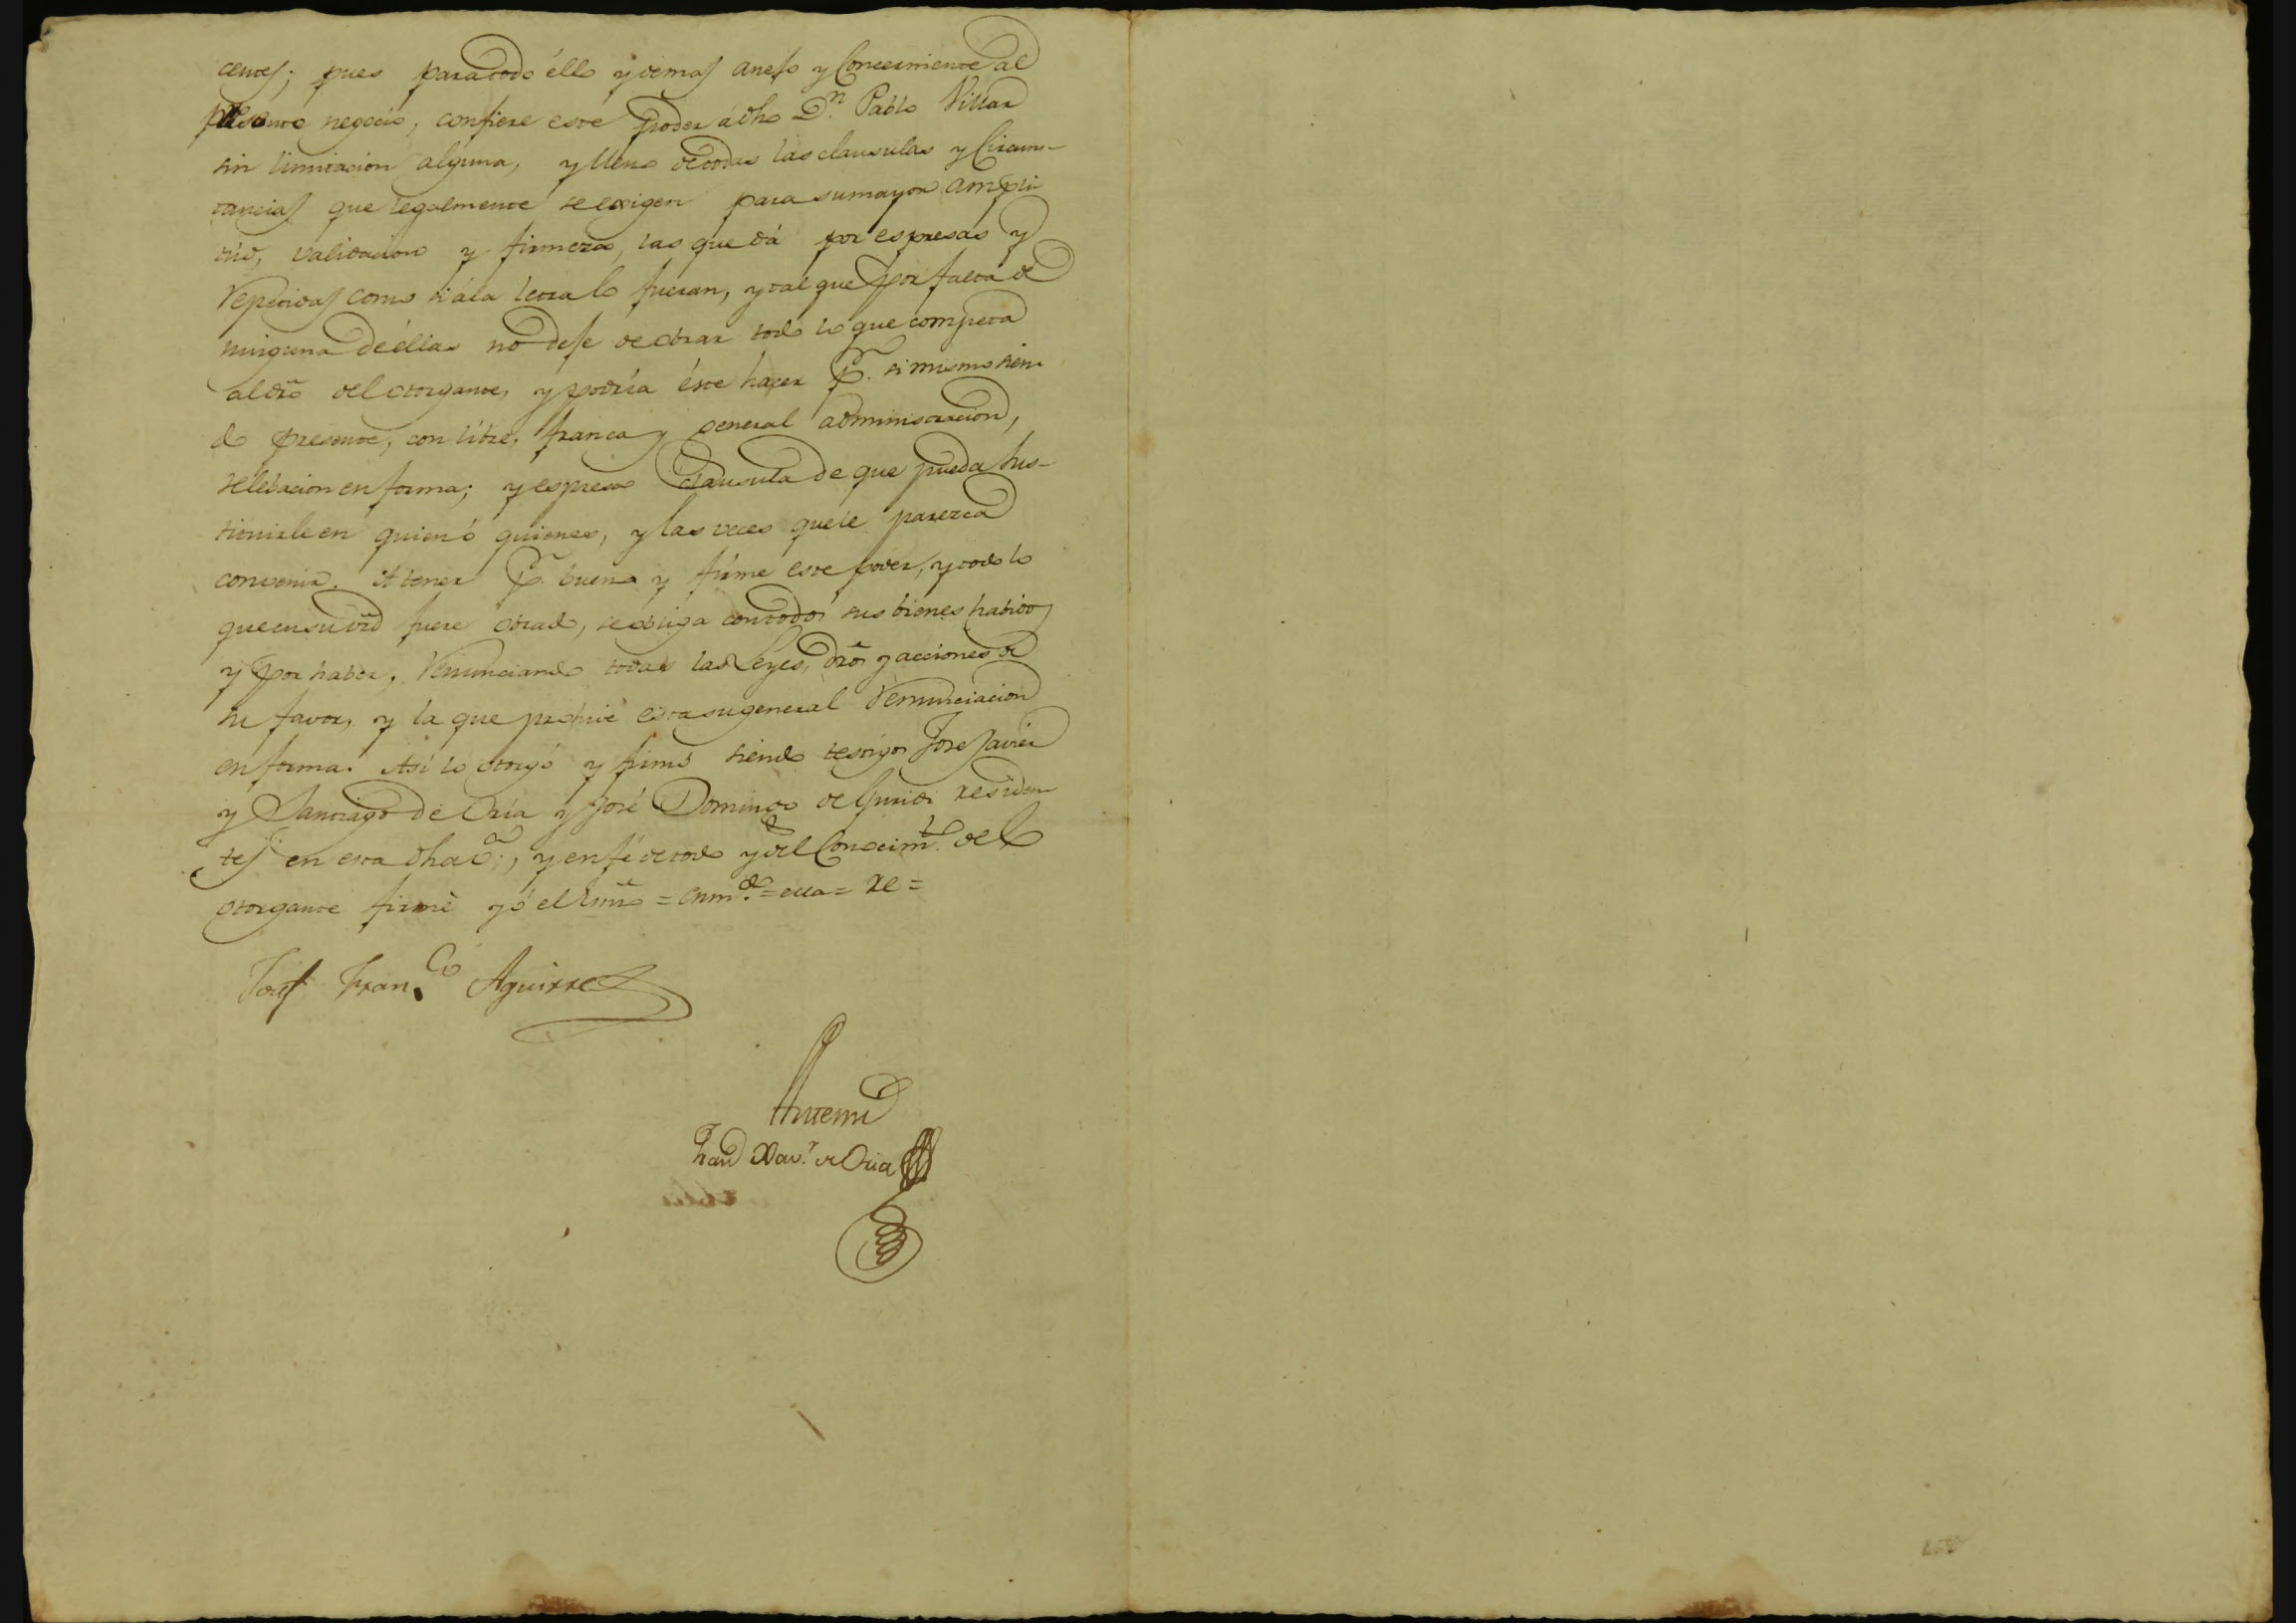 centes; pues paratodo éllo y demas anejo y Concerniente al
presente negocio, confiere este poder ádho Dn. Pablo Villar
sin limitacion alguna, y lleno detodas las clausulas y Circuns-
tancias que legalmente se exigen para sumayor ampli
tud, validacion y firmeza, las que dá por espresas y
repetidas como si ála letra lo fueran, ytal que por falta de
ninguna deéllas no deje de obrar todo lo que competa
al dro del otorgante, y podria éste hacer p. si mismo sien
do presente, con libre, franca y general administracion,
relebacion en forma; y espresa clausula de que pueda sus-
tituirle en quien ó quienes, y las veces que le parezca
convenir. A tener p. bueno y firme este poder, y todo lo
que en su vtd fuere obrado, se obliga contodos sus bienes habidos
y por haber, renunciando todas las Leyes, dros y acciones de
su favor, y la que prohive esta su general renunciacion
en forma. Asi lo otorgó y firmó siendo testigos Jose Javier
y Santiago de Oria y José Domingo de Guridi residen
tes en esta dha va., y en fé de todo y del Conocimto. del
otorgante firmé yó el Essno = enmdo. = ella = re =
Josef Franco. Aguirre
Antemi
Franco Xavr. de Oria